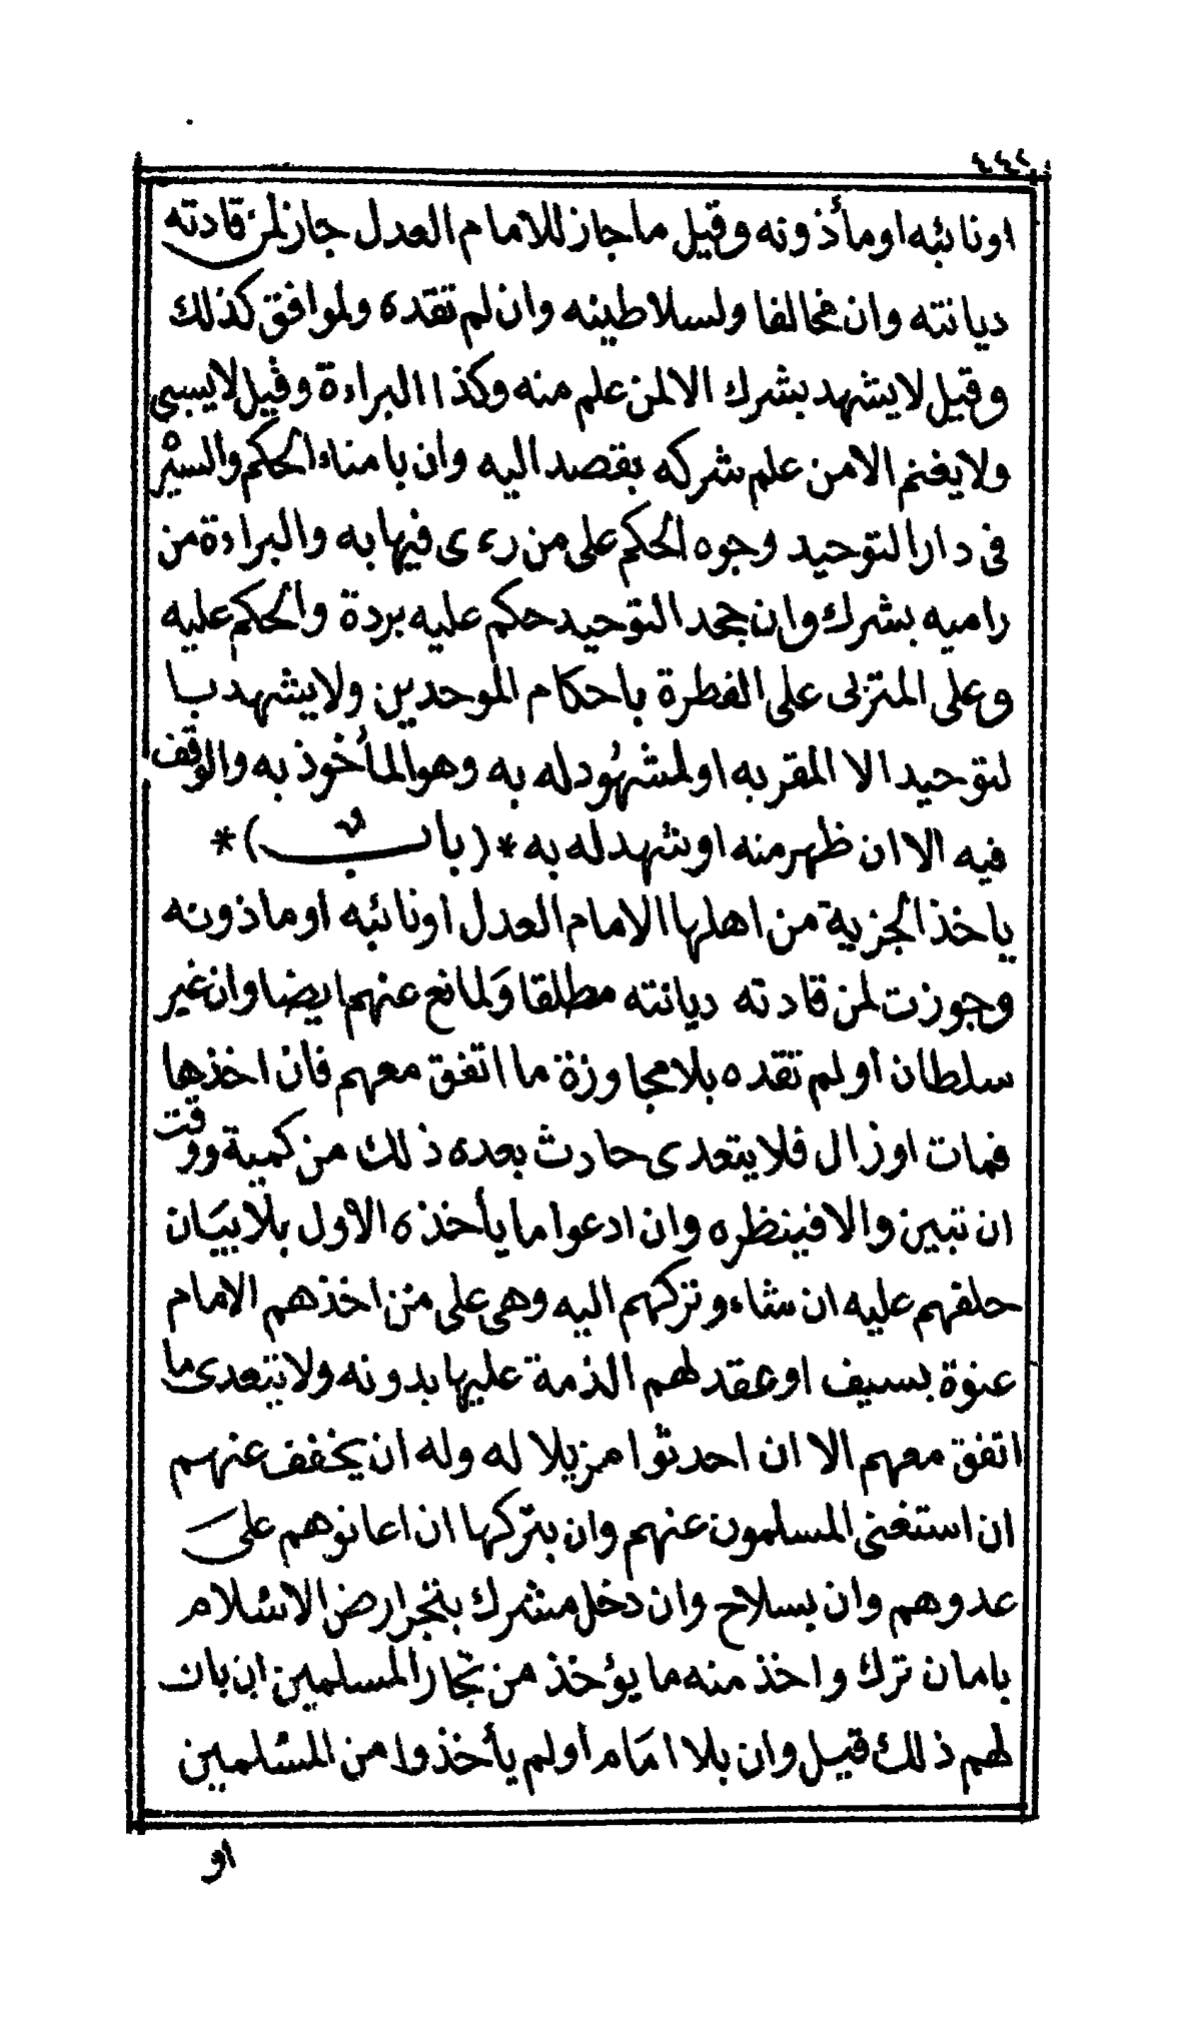 ٤٤٢
اونائبه اومأذونه وقيل ماجاز للامام العدل جاز لمن قادته
ديانته وان مخالفا ولسلاطينه وان لم تقده ولموافق كذلك
وقيل لايشهد بشرك الا لمن علم منه وكذا البراءة وقيل لايسبي
ولايغنم الامن علم شركه بقصد اليه وان بامناء الحكم والسير
فى دار التوحيد وجوه الحكم على من رءى فيها به والبراءة من
راميه بشرك وان جحد التوحيد حكم عليه بردة والحكم عليه
وعلى المتزلى على الفطرة باحكام الموحدين ولايشهد با
لتوحيد الا المقر به اولمشهود له به وهو المأخوذ به والوقف
فيه الا ان ظهر منه اوشهد له به *(باب)*
ياخذ الجزية من اهلها الامام العدل اونائبه اوماذونه
وجوزت لمن قادته ديانته مطلقا ولمانع عنهم ايضا وان غير
سلطان أولم تقده بلا مجاوزة ما اتفق معهم فان اخذها
فمات اوزال فلا يتعدى حادث بعده ذلك من كمية ووقت
ان تبين والا فينظره وان ادعوا ما يأخذه الأول بلا بيان
حلفهم عليه ان شاء وتركهم اليه وهى على من اخذهم الامام
عنوة بسيف اوعقد لهم الذمة عليها بدونه ولا يتعدى ما
اتفق معهم الا ان احدثوا مزيلا له وله ان يخفف عنهم
ان استغنى المسلمون عنهم وان يتركها ان اعانوهم على
عدوهم وان بسلاح وان دخل مشرك بتجر ارض الاسلام
بامان ترك واخذ منه ما يؤخذ من تجار المسلمين ان بان
لهم ذلك قيل وان بلا امام أولم يأخذوا من المسلمين
او